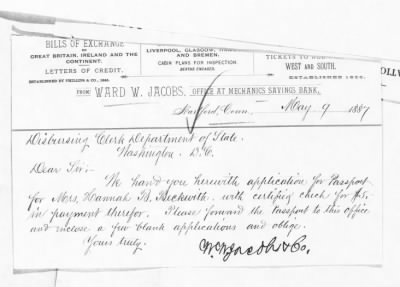 BILLS OF EXCHANGE
ON
GREAT BRITAIN, IRELAND AND THE
CONTINENT.
LETTERS OF CREDIT.
LIVERPOOL, GLASGOW,
AND BREMEN.
CABIN PLANS FOR INSPECTION.
BERTHS ENGAGED.
TICKETS TO
WEST AND SOUTH.
FROM WARD W. JACOBS, OFFICE AT MECHANICS SAVINGS BANK,
Hartford, Conn., May 9 1887
Disbursing Clerk Department of State.
Washington D.C.
Dear Sir:
We hand you herewith application for Passport
for Mrs. Hannah B. Beckwith with certified check for
in payment therefor. Please forward the Passport to this office
and inclose a few blank applications and oblige.
Yours truly,
W. W. Jacobs & Co.